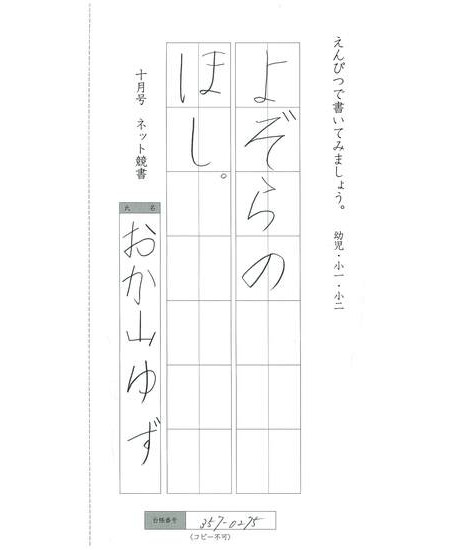 えんぴつで書いてみましょう。　幼児・小一・小二
よぞらの
ほし。
十月号　ネット競書
氏　名
おか山ゆず
台帳番号　357-0275
(コピー不可)